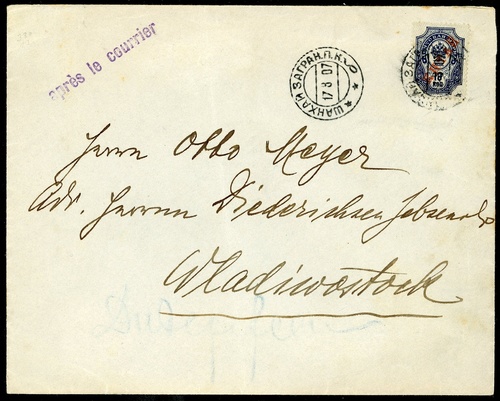 après le courrier
ШАНХАЙ ЗАГРАН.П.К.
17 3 07
Herrn Otto Meyer
Adr. Herrn Diederichsen Jebsen & Co
Wladiwostock